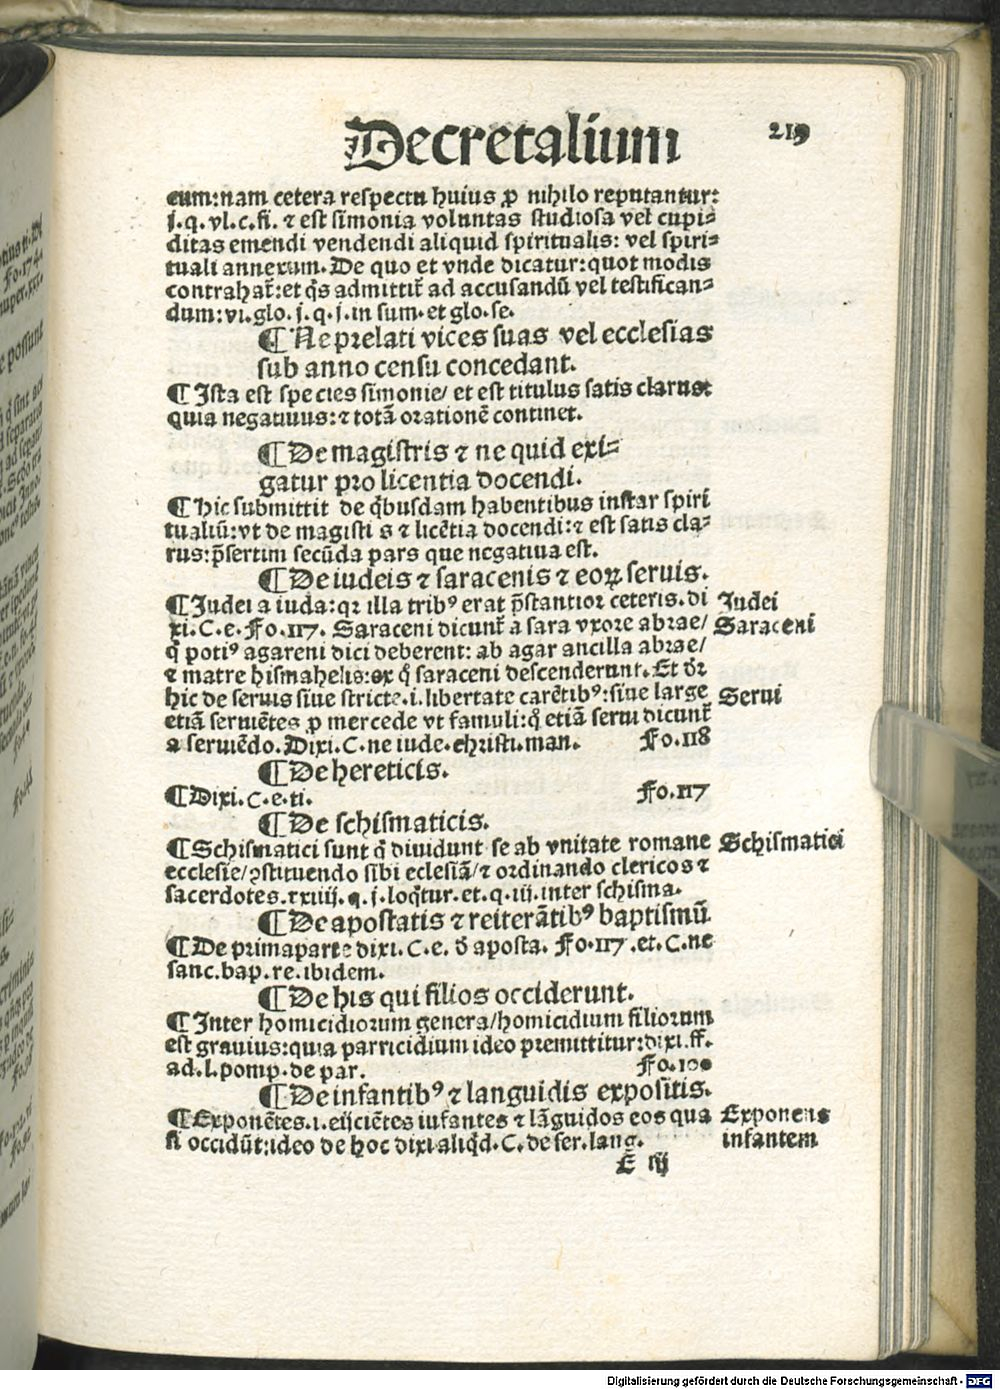 Decretalium 219
eum:nam cetera respectu huius ꝓ nihilo reputantur:
j.q.vl.c.fi. ⁊ est simonia voluntas studiosa vel cupi⸗
ditas emendi vendendi aliquid spiritualis: vel spiri⸗
tuali annexum. De quo et vnde dicatur:quot modis
contrahat̄:et q̄s admittit̄ ad accusandū vel testifican⸗
dum:vi.glo.j.q.j.in sum.et glo.se.
¶ Ne prelati vices suas vel ecclesias
sub anno censu concedant.
¶ Ista est species simonie/ et est titulus satis clarus:
quia negatiuus:⁊ totā orationē continet.
¶ De magistris ⁊ ne quid exi⸗
gatur pro licentia docendi.
¶ Hic submittit de q̄busdam habentibus instar spiri
tualiū:vt de magisti s ⁊ licētia docendi:⁊ est satis cla⸗
rus:p̄sertim secūda pars que negatiua est.
¶ De iudeis ⁊ saracenis ⁊ eoꝝ seruis.
¶ Iudei a iuda:qꝛ illa tribꝰ erat p̄stantior ceteris.di Iudei
xi.C.e.Fo.117. Saraceni dicunt̄ a sara vxore abrae/ Saraceni
q̄ potiꝰ agareni dici deberent: ab agar ancilla abrae/
⁊ matre hismahelis:ex q̄ saraceni descenderunt. Et dr̄
hic de seruis siue stricte.i.libertate carētibꝰ:siue large Serui
etiā seruiētes ꝓ mercede vt famuli:q̄ etiā serui dicunt̄
a seruiēdo.Dixi.C.ne iude.christi.man. Fo.118
¶ De hereticis.
¶ Dixi.C.e.ti. Fo.117
¶ De schismaticis.
¶ Schismatici sunt q̄ diuidunt se ab vnitate romane Schismatici
ecclesie/ꝯstituendo sibi eclesiā/⁊ ordinando clericos ⁊
sacerdotes.xxiiij.q.j.loq̄tur.et.q.iij.inter schisma.
¶ De apostatis ⁊ reiterātibꝰ baptismū.
¶ De primaparte dixi.C.e.đ aposta. Fo.117.et.C.ne
sanc.bap.re.ibidem.
¶ De his qui filios occiderunt.
¶ Inter homicidiorum genera/homicidium filiorum
est grauius:quia parricidium ideo premittitur:dixi.ff.
ad.l.pomp.de par. Fo.100
¶ De infantibꝰ ⁊ languidis expositis.
¶ Exponētes.i.eijciētes iufantes ⁊ lāguidos eos qua Exponens
si occidūt:ideo de hoc dixi aliq̄d.C.de ser.lang. infantem
E iij
Digitalisierung gefördert durch die Deutsche Forschungsgemeinschaft - DFG